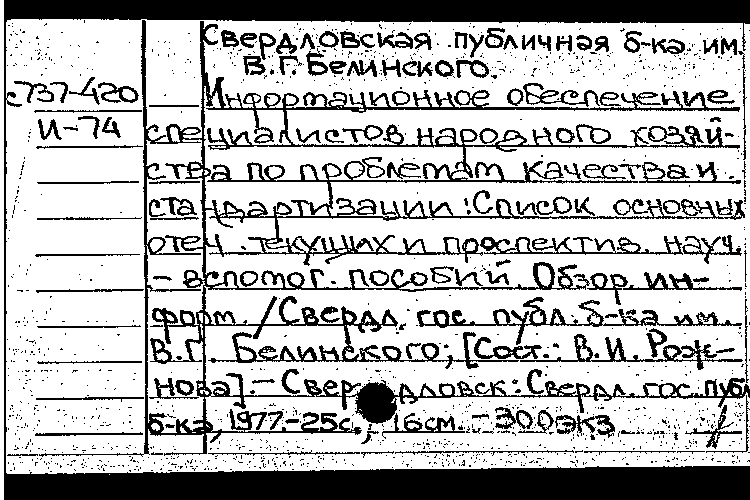 Свердловская публичная б-ка им.
В.Г. Белинского.
с737-420 Информационное обеспечение
И-74 специалистов народного хозяй-
ства по проблемам качества и
стандартизации: Список основных
отеч. текущих и проспектив. науч.
- вспомог. пособий. Обзор. ин-
форм. / Свердл. гос. публ. б-ка им.
В.Г. Белинского; [Сост.: В.И. Рож-
нова]. - Свердловск: Свердл. гос. публ
б-ка, 1977. - 25с.; 16см. - 300экз.